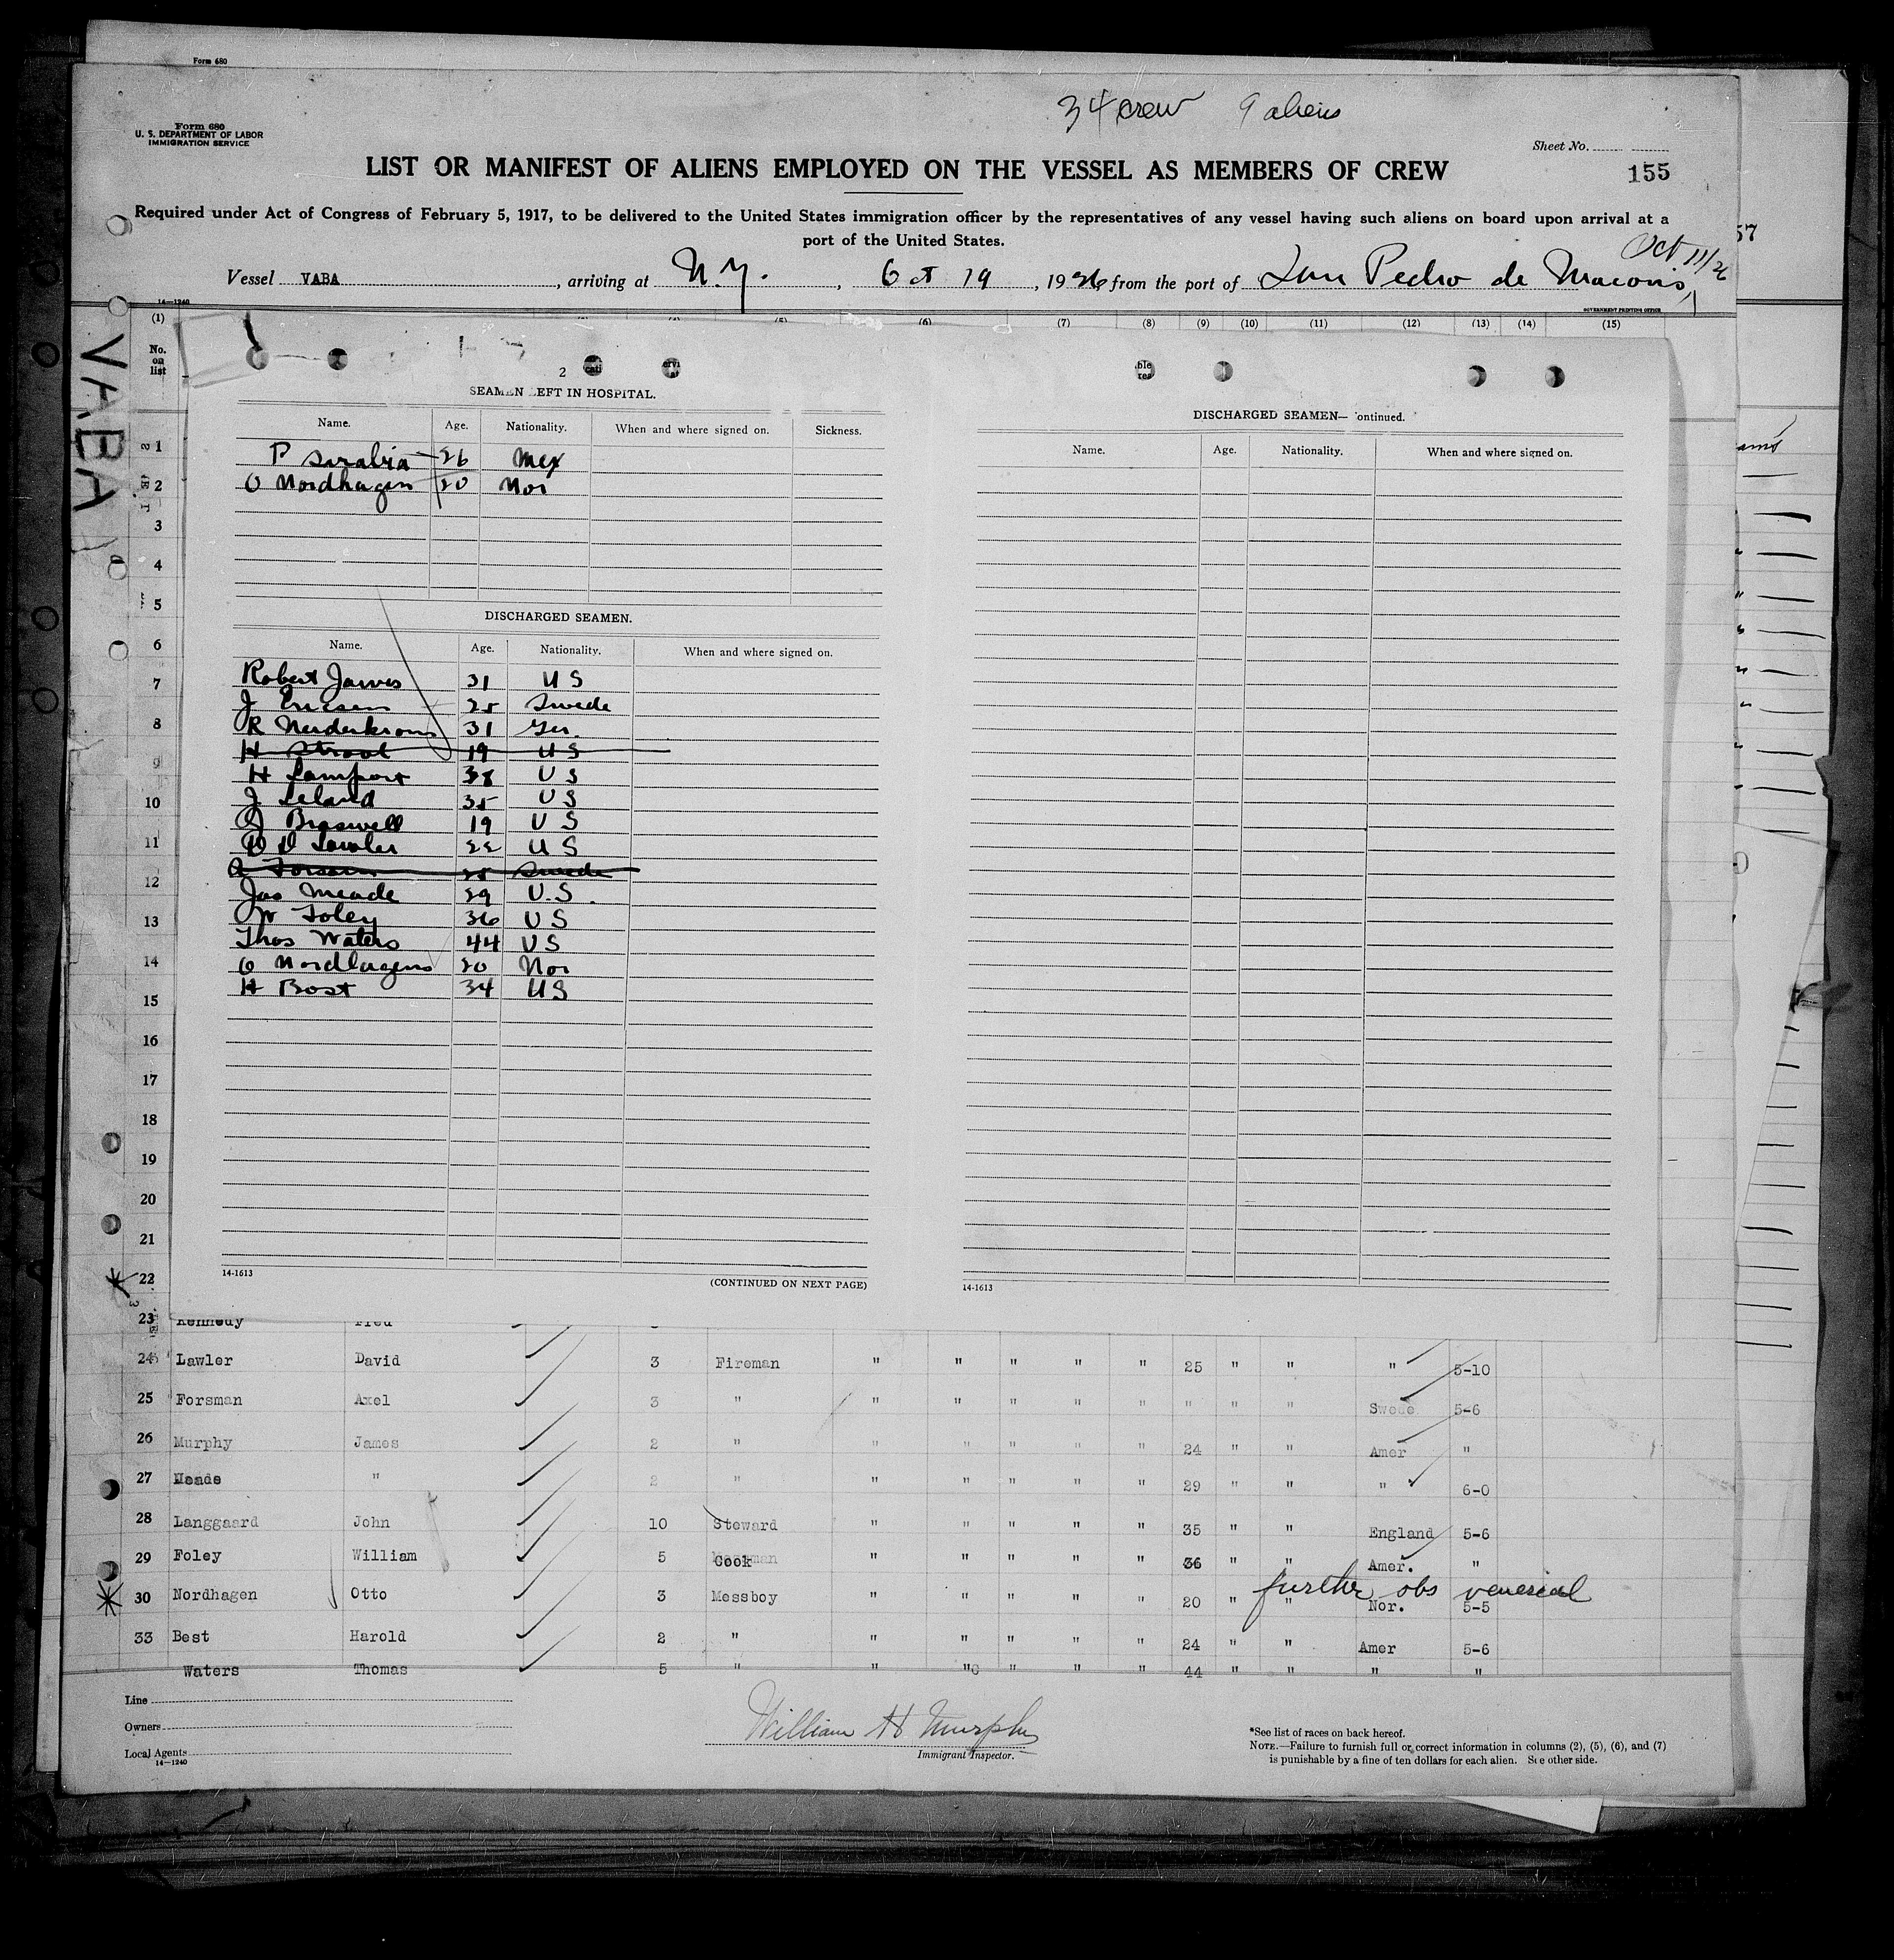 Form 680
34 crew 9 aliens
Form 680
U. S. DEPARTMENT OF LABOR
IMMIGRATION SERVICE
Sheet No.
LIST OR MANIFEST OF ALIENS EMPLOYED ON THE VESSEL AS MEMBERS OF CREW
155
Required under Act of Congress of February 5, 1917, to be delivered to the United States immigration officer by the representatives of any vessel having such aliens on board upon arrival at a
port of the United States.
57
Oct 11/26
Vessel VABA, arriving at N.Y., Oct 19, 1926, from the port of San Pedro de Macoris,
14—1240
GOVERNMENT PRINTING OFFICE
(1) (6) (7) (8) (9) (10) (11) (12) (13) (14) (15)
No. on list
VABA
2
SEAMEN LEFT IN HOSPITAL.
Name. Age. Nationality. When and where signed on. Sickness.
1 P Sarabia 26 Mex
2 O Nordhagen 20 Nor
3
4
5
DISCHARGED SEAMEN.
6
Name. Age. Nationality. When and where signed on.
7
Robert James 31 US
J Ericsen 25 Swede
8
R 31 Ger.
H Stroot 19 US
9
H Lamport 38 US
10
J Leland 35 US
J Braswell 19 US
11
D D Lawler 22 US
A Forsman 25 Swede
12
Jas Meade 29 U.S.
13
W Foley 36 US
Thos Waters 44 US
14
O Nordhagens 20 Nor
15
H Bost 34 US
16
17
18
19
20
21
22
14-1613
(CONTINUED ON NEXT PAGE)
DISCHARGED SEAMEN—Continued.
Name. Age. Nationality. When and where signed on.
14-1613
23 Kennedy Fred
24 Lawler David 3 Fireman " " " " " 25 " " " 5-10
25 Forsman Axel 3 " " " " " " " " " Swede 5-6
26 Murphy James 2 " " " " " " 24 " " Amer "
27 Meade " 2 " " " " " " 29 " " " 6-0
28 Langgaard John 10 Steward " " " " " 35 " " England 5-6
29 Foley William 5 Cook " " " " " 36 " " Amer. "
further obs venereal
30 Nordhagen Otto 3 Messboy " " " " " 20 " " Nor. 5-5
33 Best Harold 2 " " " " " " 24 " " Amer 5-6
Waters Thomas 5 " " " " " " 44 " " " "
Line
Owners
Local Agents
14—1240
William H Murphy
Immigrant Inspector.
*See list of races on back hereof.
NOTE.—Failure to furnish full or correct information in columns (2), (5), (6), and (7)
is punishable by a fine of ten dollars for each alien. See other side.